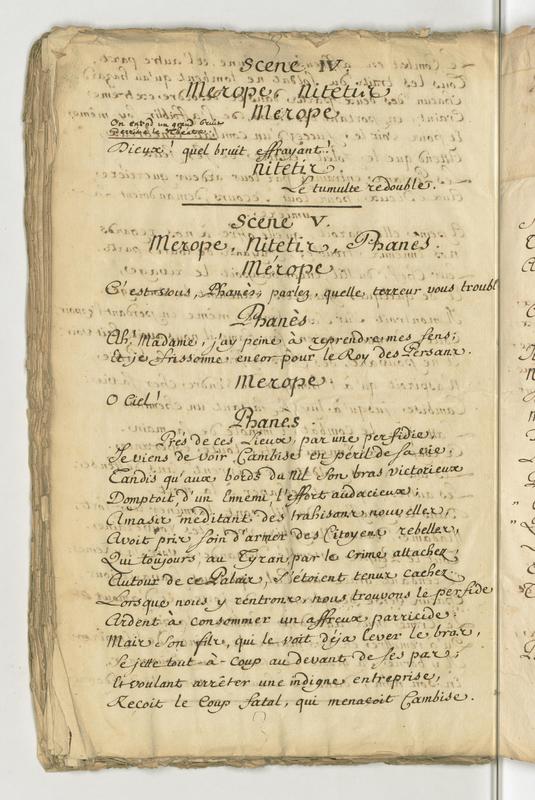 Scene IV.
Merope, Nitetis
Merope
On entend un grand bruit
derriere le Theatre.
Dieux! quel bruit effrayant!
Nitetis.
Le tumulte redouble.
Scene V.
Merope, Nitetis, Phanès.
Mérope
C'est vous, Phanès; parlez, quelle terreur vous troubl
Phanès
Ah! Madame, j'ay peine à reprendre mes sens;
Et je frissonne encor pour le Roy des Persans.
Merope
O Ciel!
Phanès.
Près de ces Lieux, par une perfidie,
Je viens de voir Cambise en péril de sa vie;
Tandis qu'aux bords du Nil son bras victorieux
Domptoit d'un Ennemi l'effort audacieux;
Amasis méditant des trahisons nouvelles,
Avoit pris soin d'armer des Citoyens rebelles,
Qui toûjours au Tyran par le crime attachez,
Autour de ce Palais, s'étoient tenus cachez
Lorsque nous y rentrons, nous trouvons le perfide
Ardent à consommer un affreux parricide:
Mais son fils, qui le voit déja lever le bras,
Se jette tout-à-coup au devant de ses pas;
Et voulant arrêter une indigne entreprise,
Reçoit le Coup fatal, qui menaçoit Cambise.